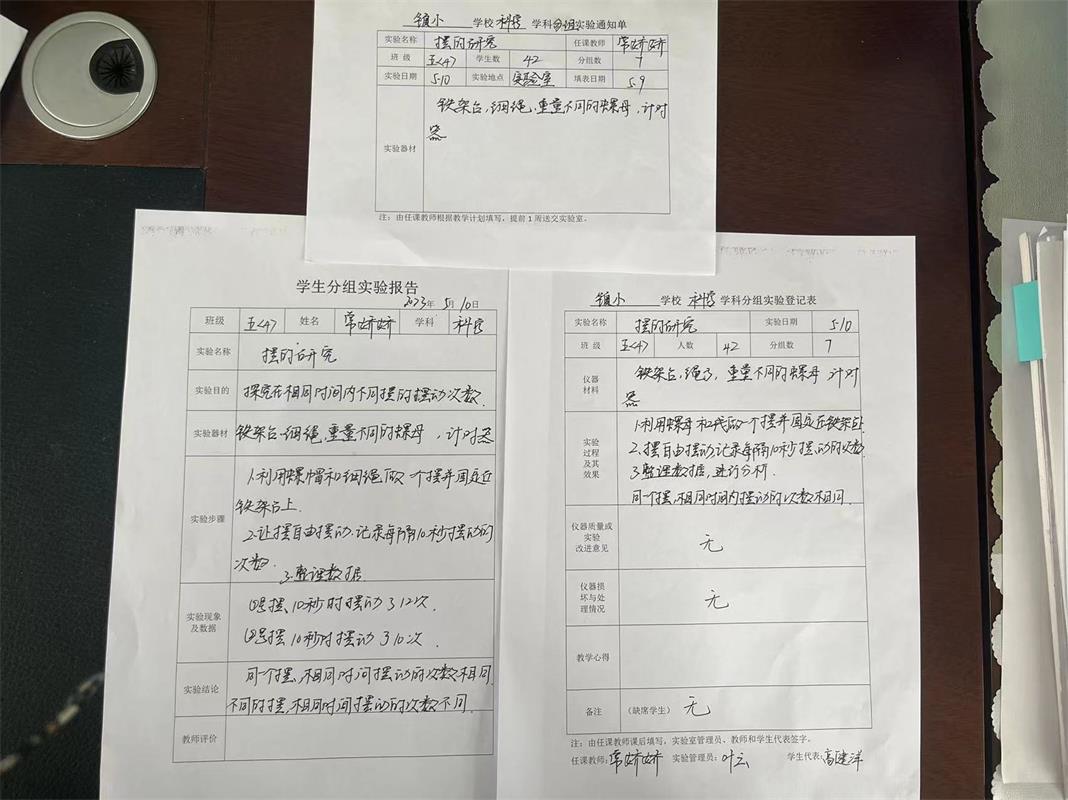 镇小 学校 科学 学科分组实验通知单
实验名称 摆的研究 任课教师 常娇娇
班 级 五<4> 学生数 42 分组数 7
实验日期 5.10 实验地点 实验室 填表日期 5.9
实验器材 铁架台,细绳,重量不同的螺母,计时
器
注:由任课教师根据教学计划填写,提前1周送交实验室。
学生分组实验报告
2023年 5月 10日
班级 五<4> 姓名 常娇娇 学科 科学
实验名称 摆的研究
实验目的 探究在相同时间内不同摆的摆动次数.
实验器材 铁架台、细绳,重量不同的螺母,计时器
实验步骤 1.利用螺帽和细绳做一个摆并固定在
铁架台上.
2.让摆自由摆动.记录每隔10秒摆动的
次数.
3.整理数据.
实验现象
及数据
①号摆、10秒时摆动了12次.
②号摆10秒时摆动了10次.
实验结论 同一个摆、相同时间摆动的次数相同.
不同的摆,相同时间摆动的次数不同.
教师评价
镇小 学校 科学 学科分组实验登记表
实验名称 摆的研究 实验日期 5.10
班 级 五<4> 人数 42 分组数 7
仪器
材料
铁架台,绳子,重量不同的螺母 计时
器
实验
过程
及其
效果
1.利用螺母和线做一个摆并固定在铁架台上
2.摆自由摆动,记录每隔10秒摆动的次数
3.整理数据,进行分析.
同一个摆,相同时间内摆动的次数相同.
仪器质量或
实验
改进意见
无
仪器损
坏与处
理情况
无
教学心得
备注 (缺席学生) 无
注:由任课教师课后填写,实验室管理员、教师和学生代表签字。
任课教师:常娇娇 实验管理员:叶云 学生代表:高建洋